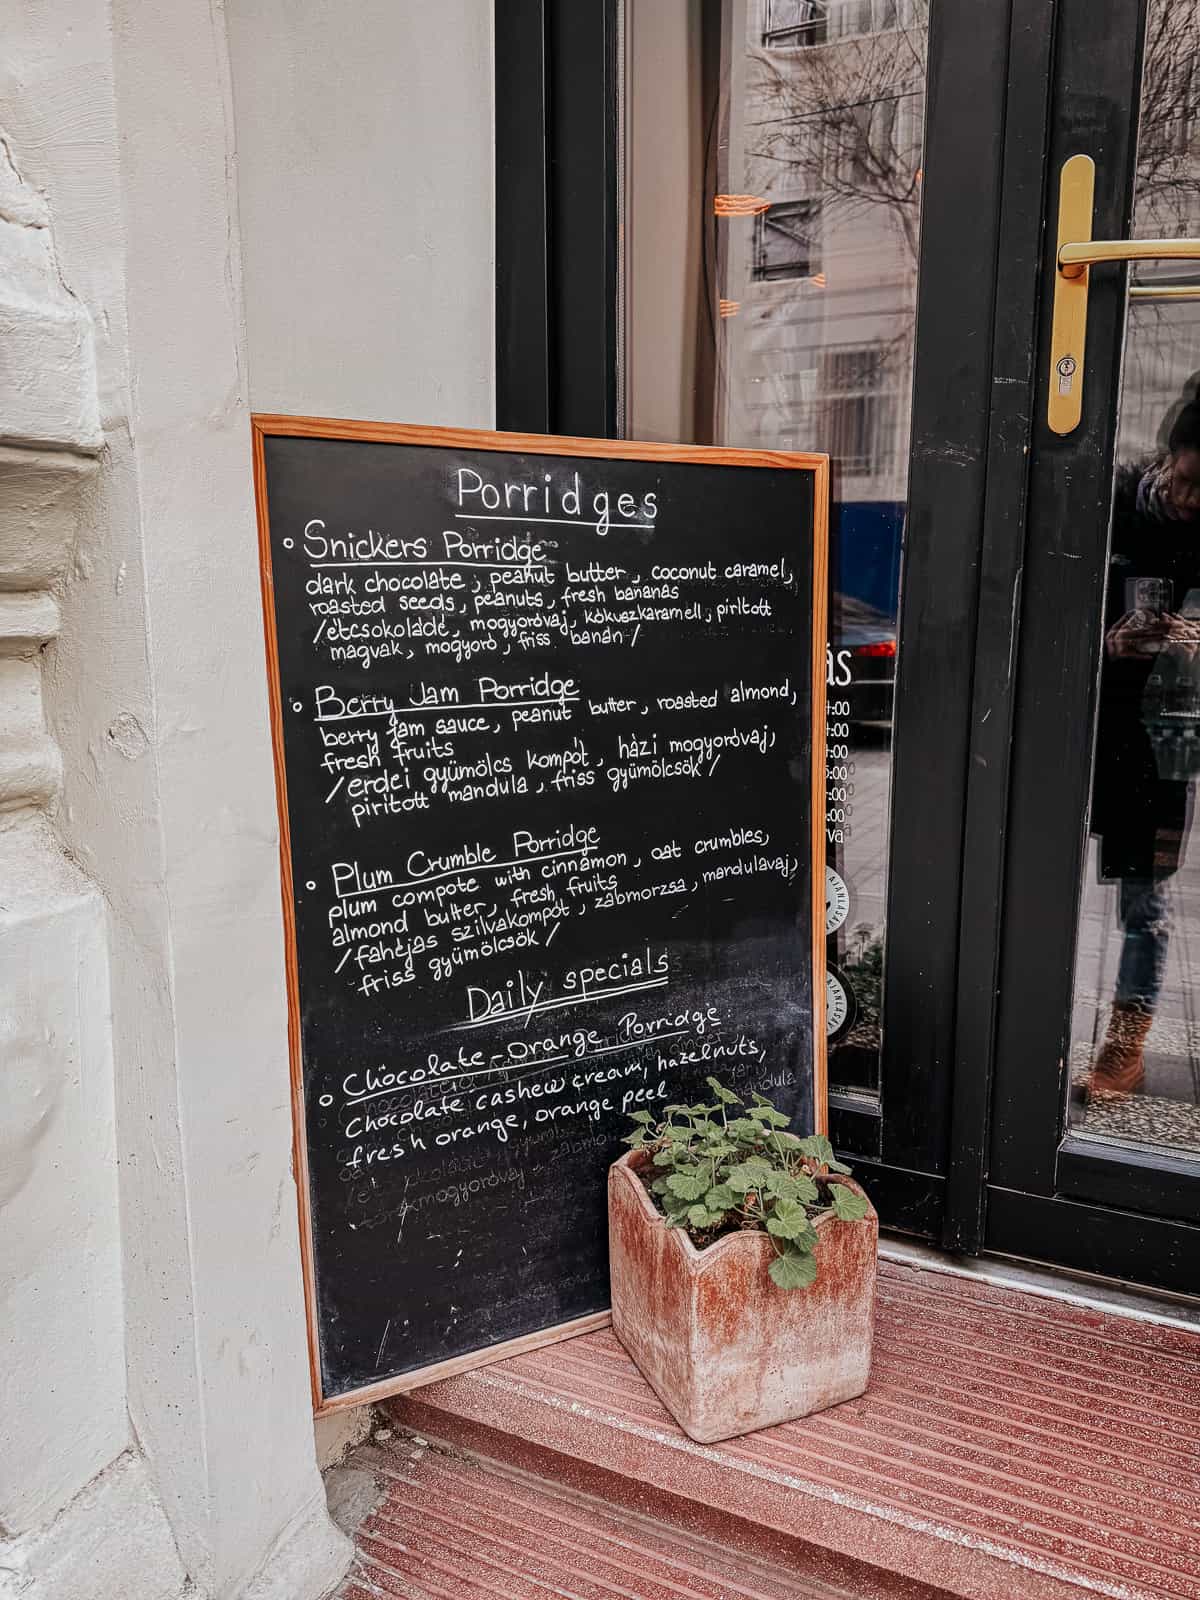 Porridges
Snickers Porridge
dark chocolate, peanut butter, coconut caramel,
roasted seeds, peanuts, fresh bananas
/étcsokoládé, mogyoróvaj, kókuszkaramell, pirított
magvak, mogyoró, friss banán/
Berry Jam Porridge
berry jam sauce, peanut butter, roasted almond,
fresh fruits
/erdei gyümölcs kompót, házi mogyoróvaj,
pirított mandula, friss gyümölcsök/
Plum Crumble Porridge
plum compote with cinnamon, oat crumbles,
almond butter, fresh fruits
/fahéjas szilvakompót, zabmorzsa, mandulavaj,
friss gyümölcsök/
Daily specials
Chocolate-orange Porridge:
Chocolate cashew cream, hazelnuts,
fresh orange, orange peel
mandula
ás
:00
:00
:00
:00
:00
:00
va
AJÁNLÁSÁVAL